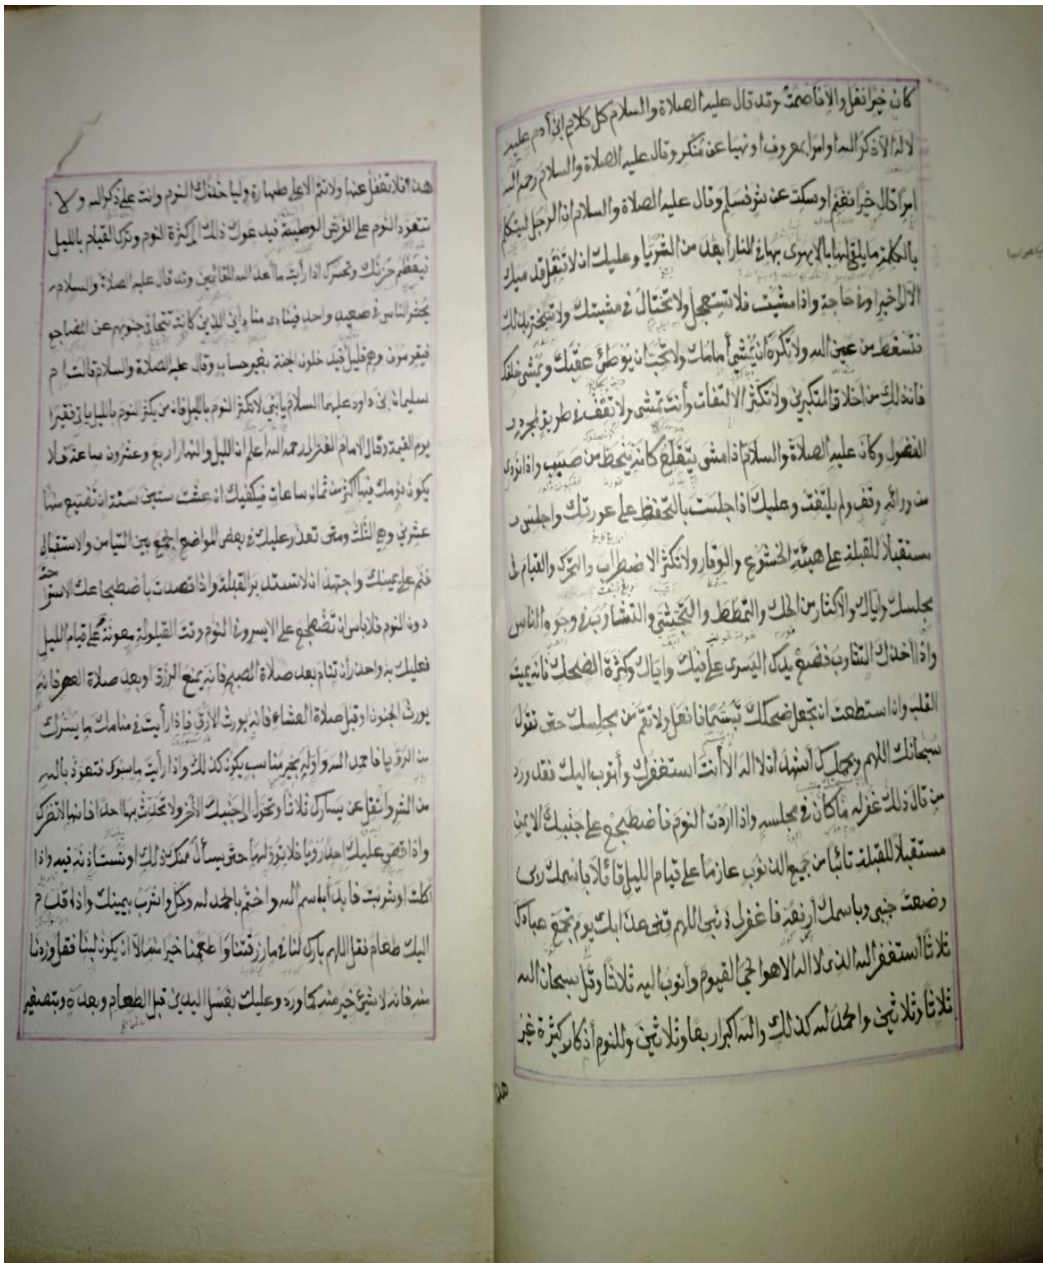 كان خيرا فقل والا فاصمت وقد قال عليه الصلاة والسلام كل كلام ابن آدم عليه
لا له الا ذكر الله او امرا بمعروف او نهيا عن منكر وقال عليه الصلاة والسلام رحم الله
امرا قال خيرا فغنم او سكت عن شر فسلم وقال عليه الصلاة والسلام ان الرجل ليتكلم
بالكلمة ما يلقي لها بالا يهوى بها في النار ابعد من الثريا وعليك ان لا تنقل قدميك
الا الى خير او في حاجة واذا مشيت فلا تستعجل ولا تختال في مشيتك ولا تتبختر بذلك
فتسقط من عين الله ولا تكره ان يمشي امامك ولا تحب ان يوطئ عقبك ويمشى خلفك
فان ذلك من أخلاق المتكبرين ولا تكثر الالتفات وأنت تمشي ولا تقف في طريق لمجرد
الفضول وكان عليه الصلاة والسلام اذا مشى يتقلع كانه ينحط من صبب واذا نودي
من ورائه وقف ولم يلتفت وعليك اذا جلست بالتحفظ على عورتك واجلس
مستقبلا للقبلة على هيئة الخشوع والوقار ولا تكثر الاضطراب والتحرك والقيام في
مجلسك واياك والاكثار من الحك والتمطط والتجشئ والتثاؤب في وجوه الناس
واذا أخذك التثاوب فضع يدك اليسرى على فيك واياك وكثرة الضحك فانه يميت
القلب وان استطعت ان تجعل ضحكك تبسما فافعل ولا تقم من مجلسك حتى تقول
سبحانك اللهم وبحمدك أشهد ان لا اله الا أنت استغفرك وأتوب اليك فقد ورد
من قال ذلك غفر له ما كان في مجلسه واذا اردت النوم فاضطجع على جنبك الايمن
مستقبلا للقبلة تائبا من جميع الذنوب عازما على قيام الليل قائلا باسمك ربي
وضعت جنبي وباسمك أرفعه فاغفر لي ذنبي اللهم قني عذابك يوم تجمع عبادك
ثلاثا استغفر الله الذي لا اله الا هو الحي القيوم واتوب اليه ثلاثا وقل سبحان الله
ثلاثا وثلاثين والحمد لله كذلك والله اكبر اربعا وثلاثين وللنوم أذكار كثيرة غير
هذه
هذه فلا تغفل عنها ولا تنم الا على طهارة وليأخذك النوم وانت على ذكر الله ولا
تتعود النوم على الفرش الوطيئة فيدعوك ذلك الى كثرة النوم وترك القيام بالليل
فيعظم حزنك وتحسرك اذا رأيت ما أعد الله للقائمين وقد قال عليه الصلاة والسلام
يحشر الناس في صعيد واحد فينادي مناد أين الذين كانت تتجافى جنوبهم عن المضاجع
فيقومون وهم قليل فيدخلون الجنة بغير حساب وقال عليه الصلاة والسلام قالت ام
سليمان بن داود عليهما السلام يا بني لا تكثر النوم بالليل فانه من يكثر النوم بالليل يأتي فقيرا
يوم القيمة وقال الامام الغزالي رحمه الله اعلم ان الليل والنهار اربع وعشرون ساعة فلا
يكون نومك فيها اكثر من ثمان ساعات فيكفيك ان عشت ستين سنة ان تضيع منها
عشرين وهي الثلث ومتى تعذر عليك في بعض المواضع الجمع بين التيامن والاستقبال
فنم على يمينك واجتهد ان لا تستدبر القبلة واذا قصدت باضطجاعك الاستراحة
دون النوم فلا باس ان تضطجع على الايسر وفي النوم وقت القيلولة معونة على قيام الليل
فعليك به واحذر ان تنام بعد صلاة الصبح فانه يمنع الرزق او بعد صلاة العصر فانه
يورث الجنون او قبل صلاة العشاء فانه يورث الارق فاذا رأيت في منامك ما يسرك
من الرؤيا فاحمد الله وأوله بخير مناسب يكون كذلك واذا رأيت ما يسوك فتعوذ بالله
من الشر واتفل عن يسارك ثلاثا وتحول الى جنبك الآخر ولا تحدث بها احدا فانها لا تضرك
واذا قص عليك احد رؤيا فلا تؤولها حتى يسألك منك ذلك او تستأذنه فيه واذا
اكلت او شربت فابدأ باسم الله واختم بالحمد لله وكل واشرب بيمينك واذا قدم
اليك طعام فقل اللهم بارك لنا في ما رزقتنا وأطعمنا خيرا منه الا ان يكون لبنا فقل وزدنا
منه فانه لا شئ خير منه كما ورد وعليك بغسل اليدين قبل الطعام وبعده وبتصغير